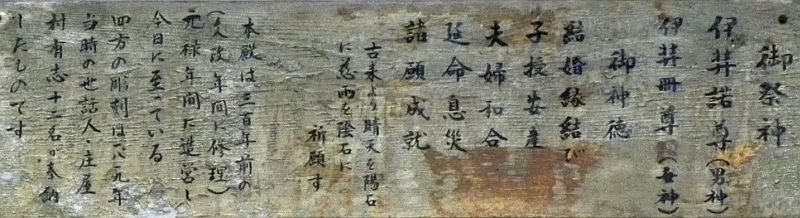 御祭神
伊弉諾尊（男神）
伊弉冊尊（女神）
御神徳
結婚縁結び
子授安産
夫婦和合
延命息災
諸願成就
古来より晴天を陽石
に慈雨を陰石に
祈願す
本殿は三百年前の
（文政年間に修理）
元禄年間に造営し
今日に至っている
四方の彫刻は元年
当時の世話人、庄屋
村有志十二名が奉納
したものです